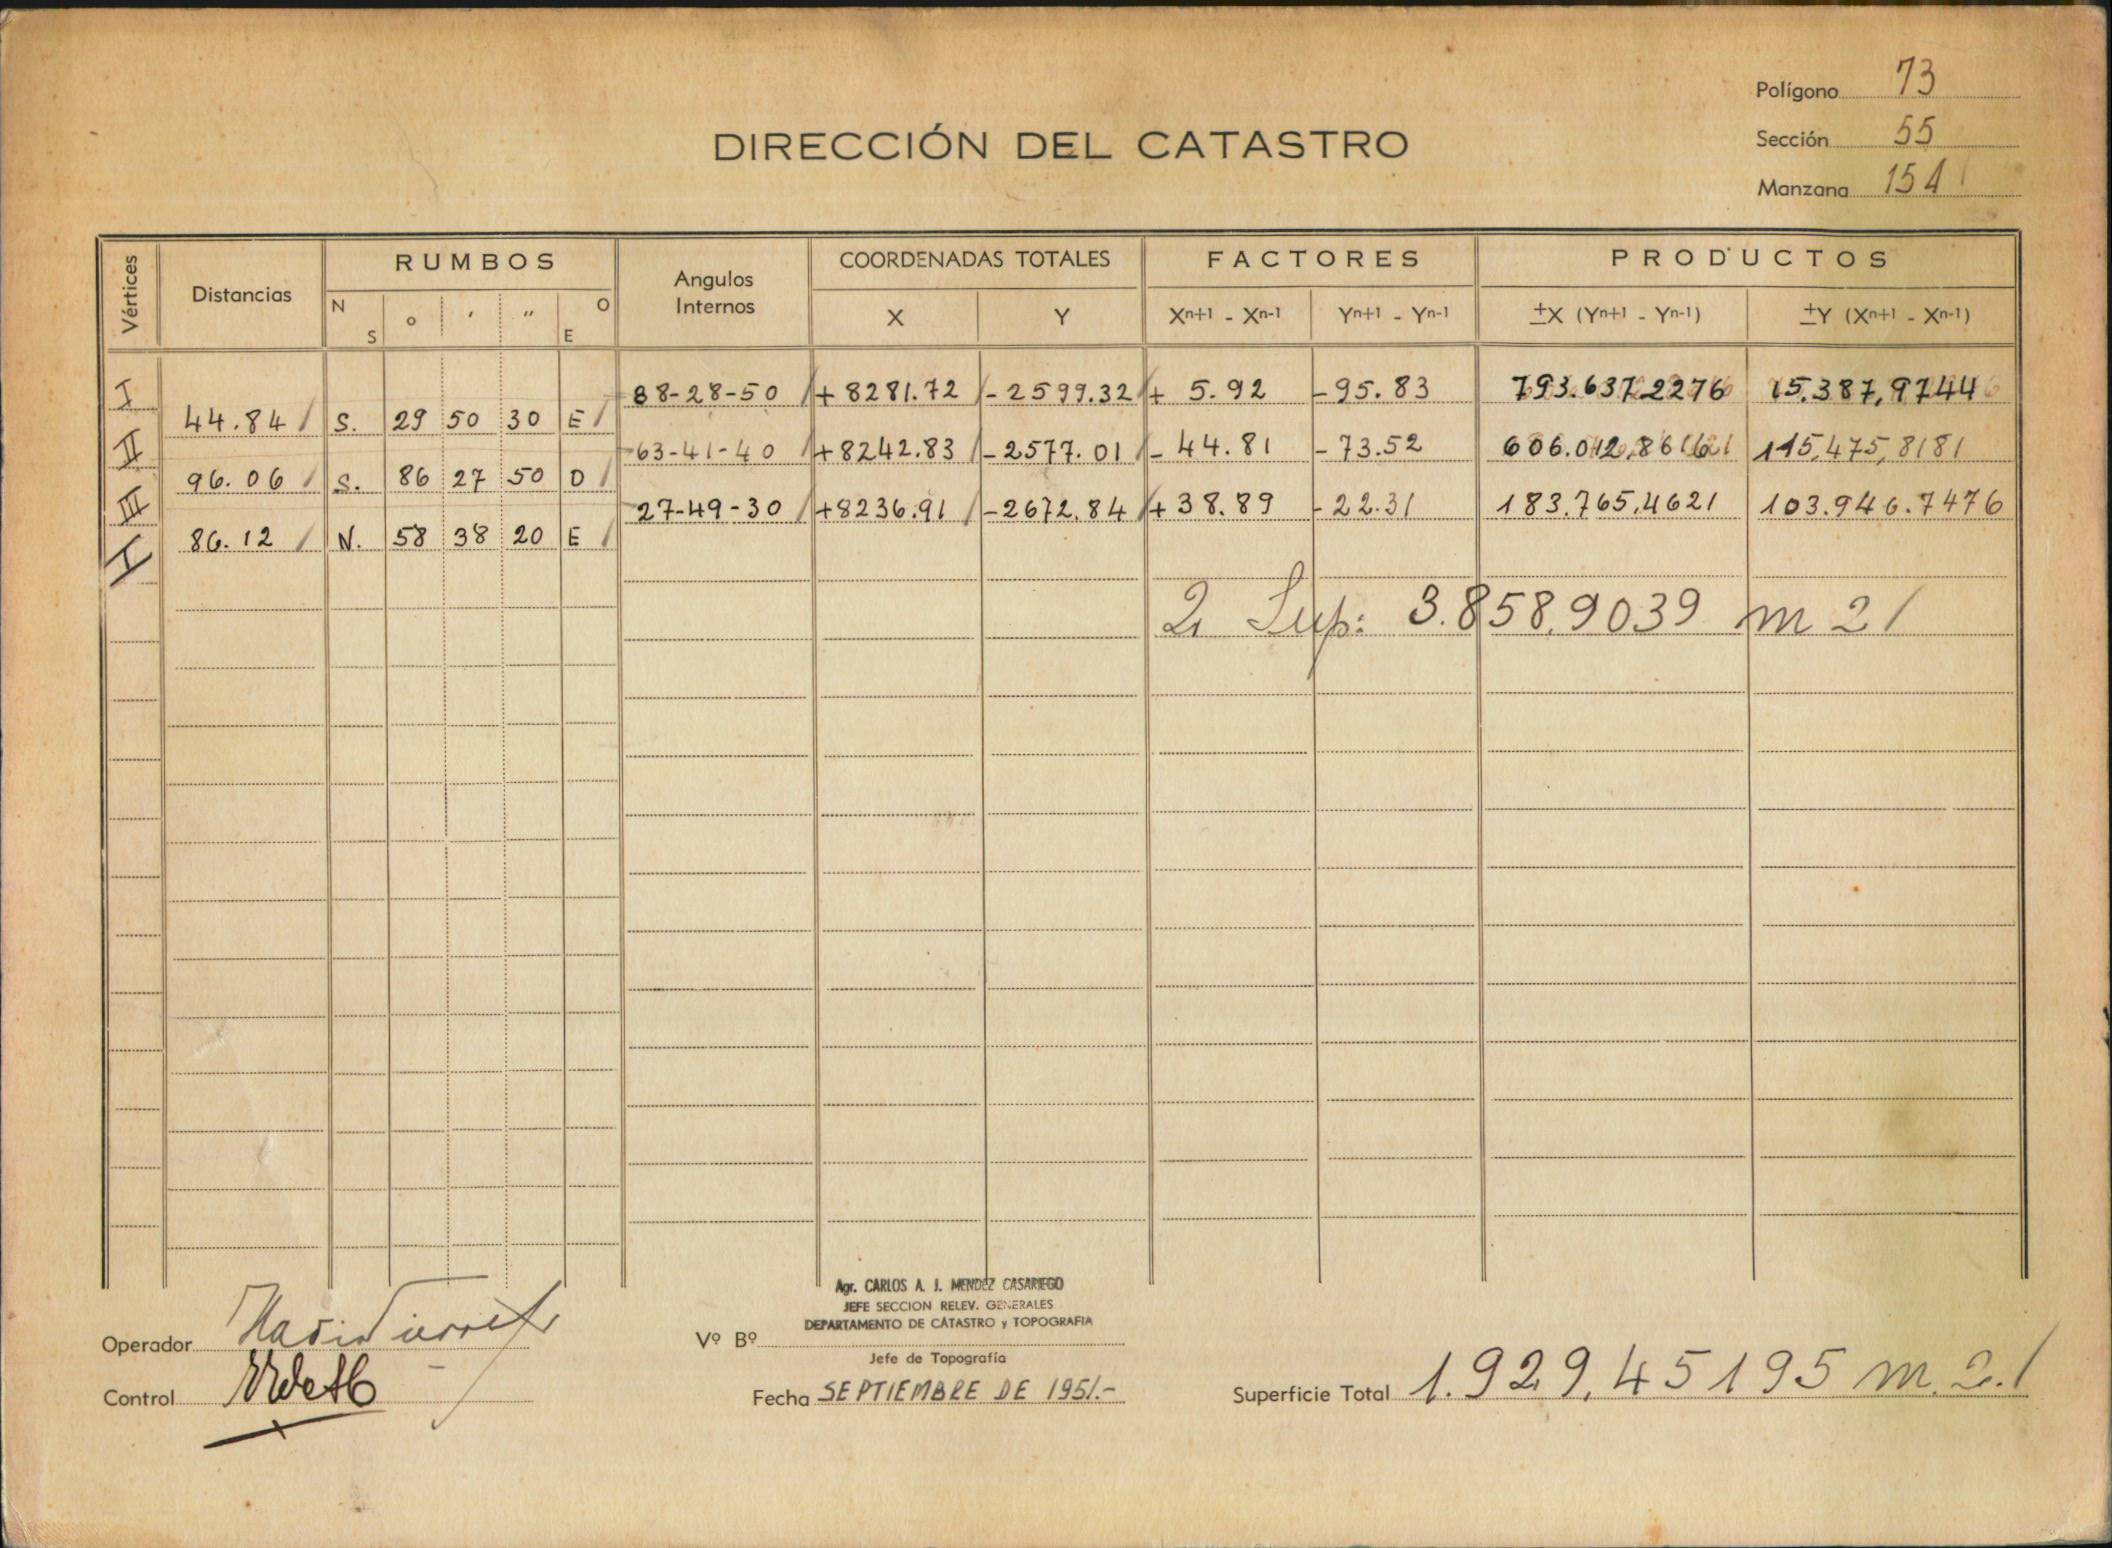 Polígono 73
DIRECCIÓN DEL CATASTRO
Sección 55
Manzana 154
Vértices Distancias RUMBOS Angulos Internos COORDENADAS TOTALES FACTORES PRODUCTOS
N S ° ' " O E X Y Xn+1 - Xn-1 Yn+1 - Yn-1 ±X (Yn+1 - Yn-1) ±Y (Xn+1 - Xn-1)
I 88-28-50 +8281.72 -2599.32 + 5.92 -95.83 793.637,2276 15.387,9744
44.84 S. 29 50 30 E
II 63-41-40 +8242.83 -2577.01 - 44.81 -73.52 606.012,8616 115.475,8181
96.06 S. 86 27 50 O
III 27-49-30 +8236.91 -2672.84 +38.89 -22.31 183.765,4621 103.946.7476
86.12 N. 58 38 20 E
I
2 Sup: 3.858,9039 m 2
Agr. CARLOS A. J. MENDEZ CASARIEGO
JEFE SECCION RELEV. GENERALES
DEPARTAMENTO DE CATASTRO y TOPOGRAFIA
Operador
Vº Bº
Jefe de Topografía
Control
Fecha SEPTIEMBRE DE 1951.-
Superficie Total 1.929,45195 m.2.